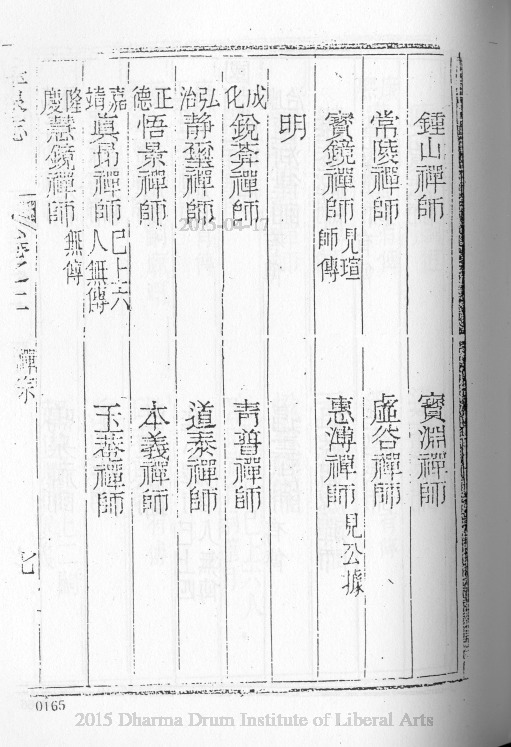 鍾山禪師 寶淵禪師
常陵禪師 虛谷禪師
寶鏡禪師 見瑄師傳 惠溥禪師 見公據
明
成化 鋭莽禪師 青普禪師
弘治 靜璽禪師 道泰禪師
正德 悟景禪師 本義禪師
嘉靖 真昂禪師 已上六人無傳 玉菴禪師
隆慶 慧鏡禪師 無傳
志 卷之二 禪宗 七
2015-04-17
0165
2015 Dharma Drum Institute of Liberal Arts